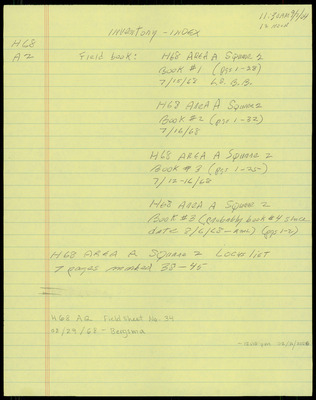 12 noon
Inventory - INDEX
H68
A2
Field book: H68 AREA A SQUARE 2
Book #1 (pgs 1-28)
7/15/68
H68 AREA A SQUARE 2
Book #2 (pgs 1-32)
7/16/68
H68 AREA A SQUARE 2
Book # 3 (pgs 1-25)
7/12-16/68
H68 AREA A SQUARE 2
Book #3 (probably book #4 since
date 8/6/68- ) (pgs 1-2)
H68 AREA A SQUARE 2 Locus list
7 pages numbered 38-45
H68 A2 Field Sheet No. 34